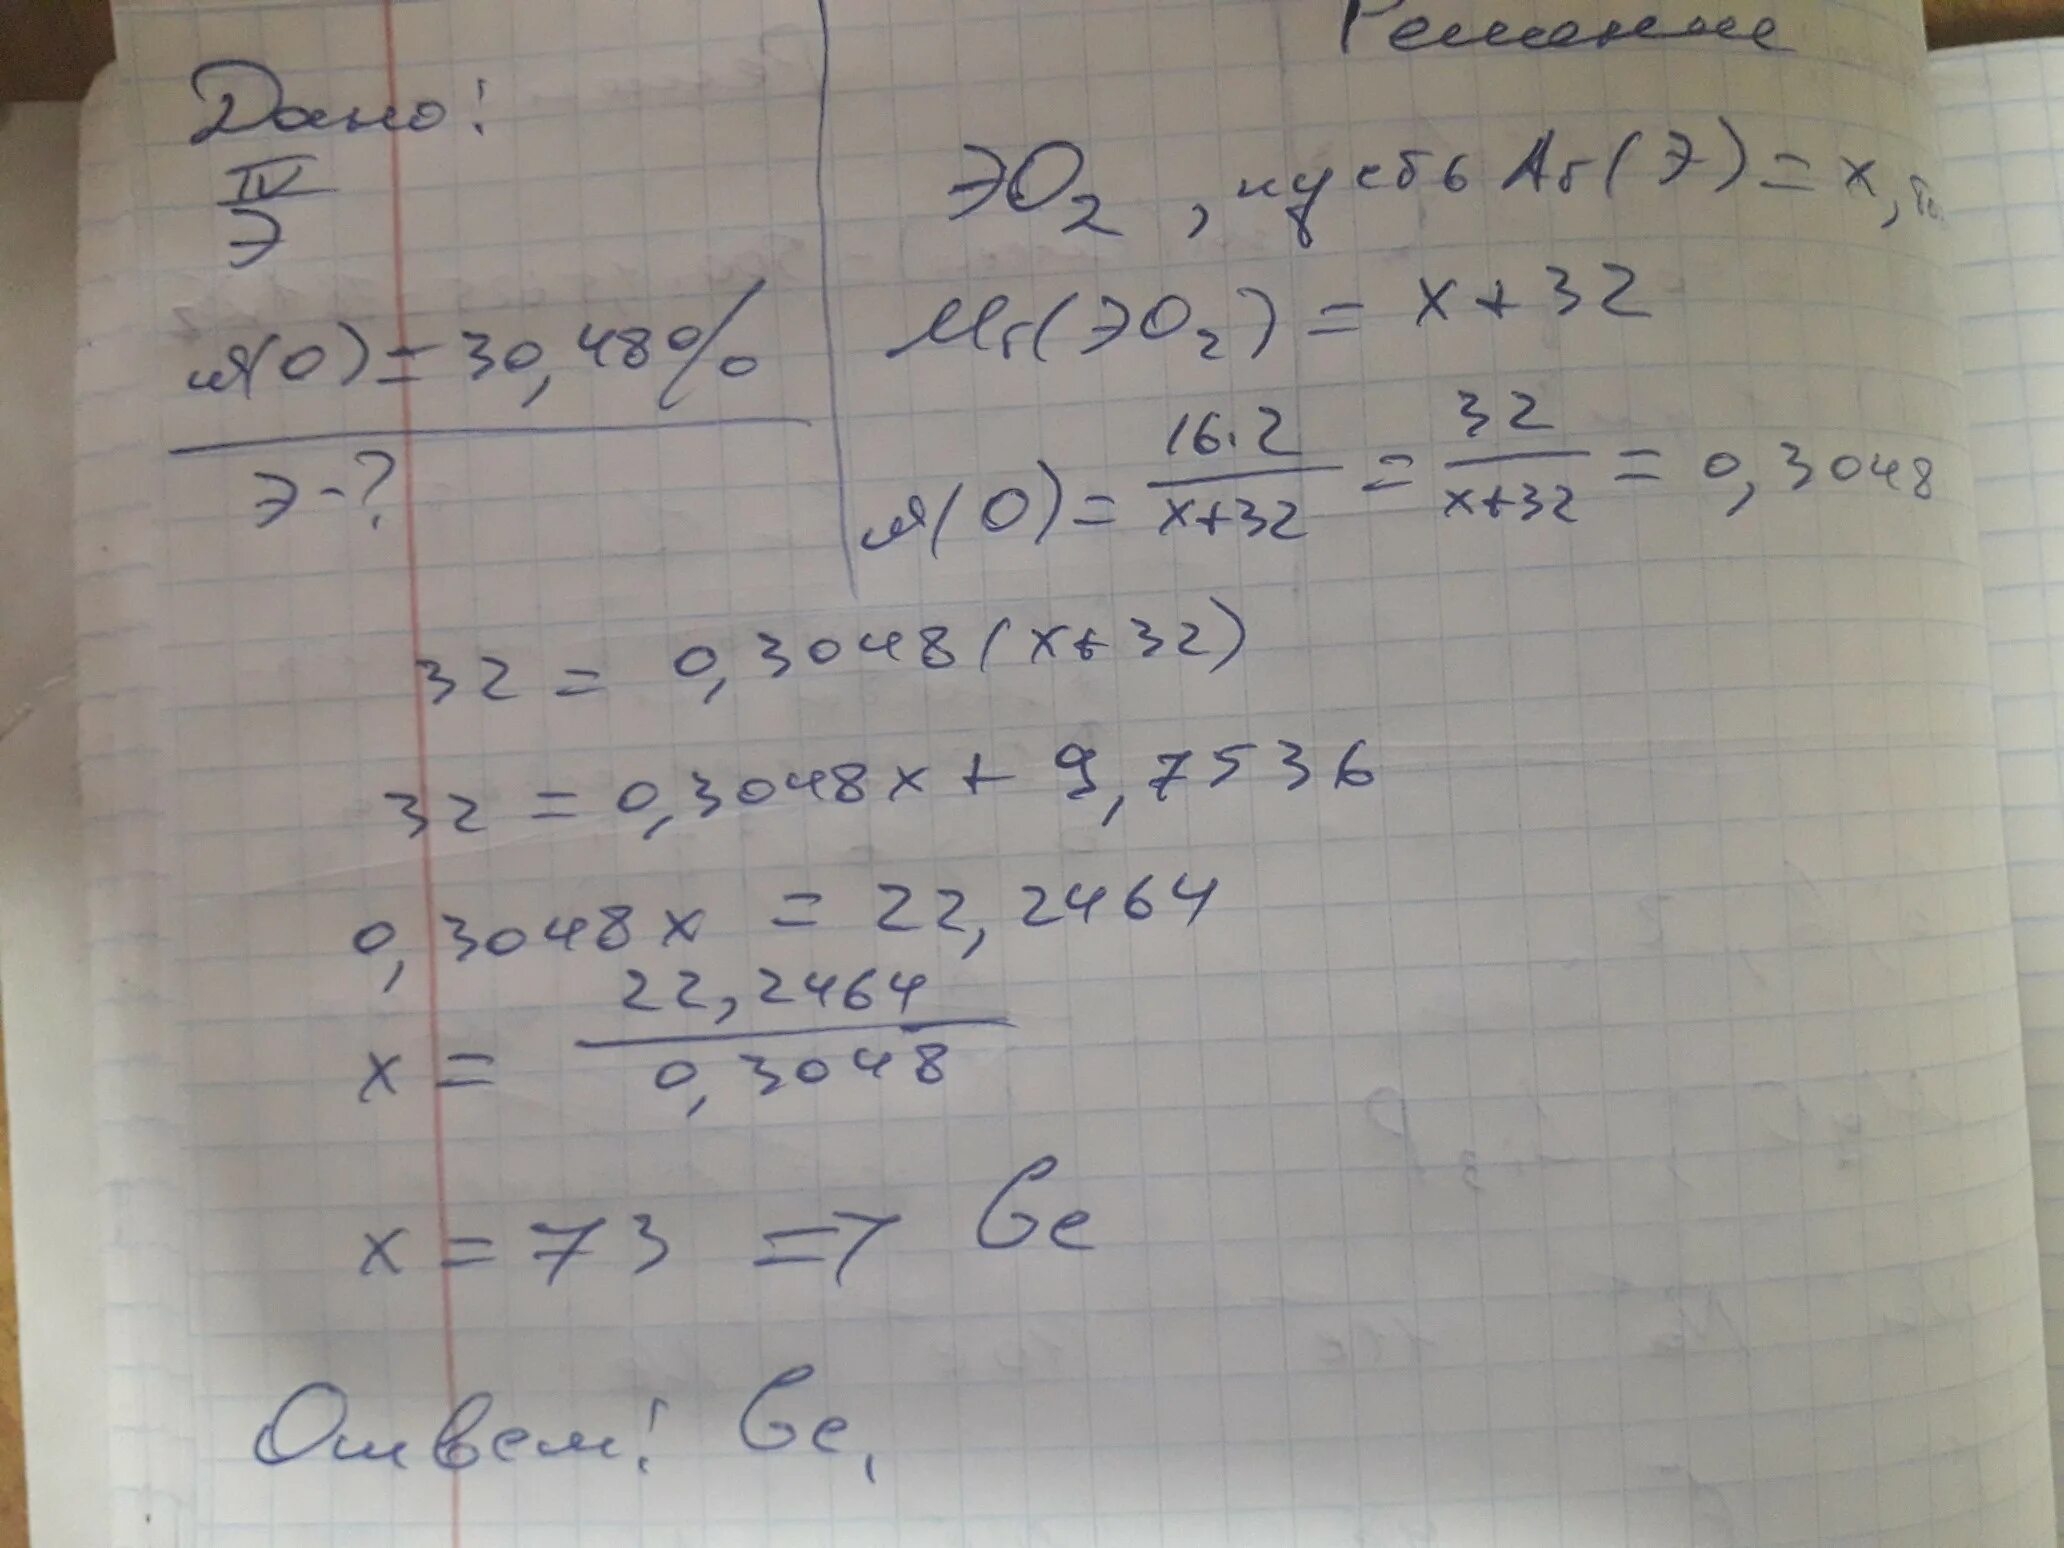 Дано:
IV
Э
ω(O) = 30,48%
Э - ?
Решение
ЭO2, пусть Ar(Э) = x,
Mr(ЭO2) = x + 32
ω(O) = 16·2 / x+32 = 32 / x+32 = 0,3048
32 = 0,3048(x+32)
32 = 0,3048x + 9,7536
0,3048x = 22,2464
x = 22,2464 / 0,3048
x = 73 => Ge
Ответ: Ge,